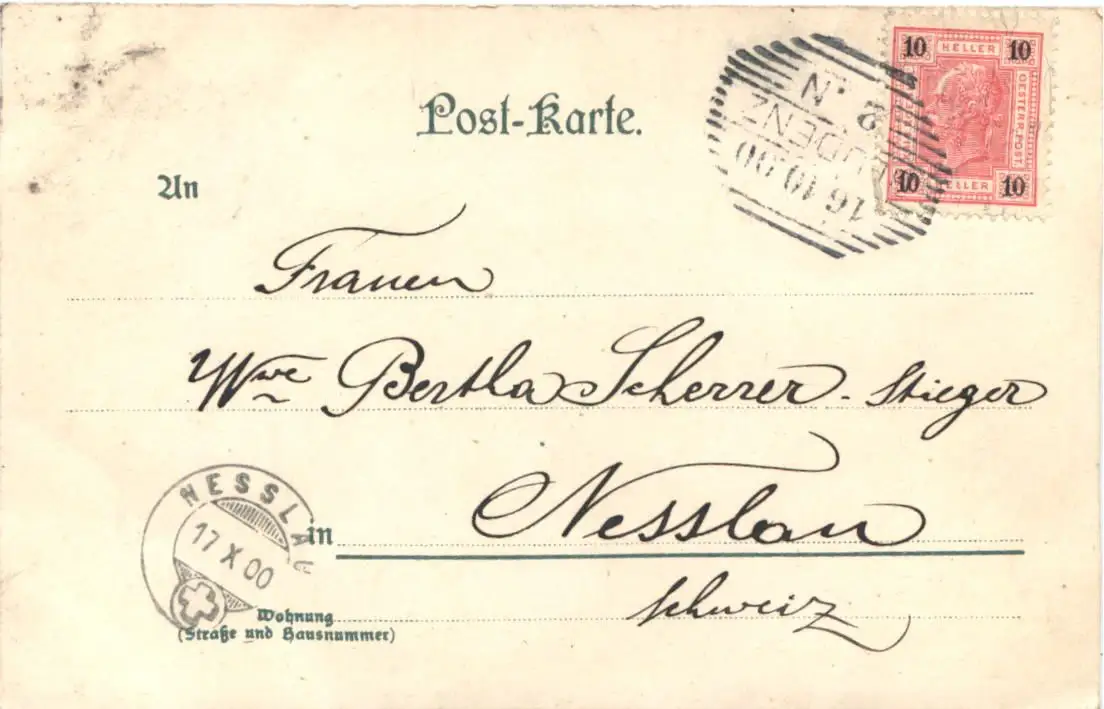 Post-Karte.
10 HELLER 10
OESTERR. POST.
10 HELLER 10
16 10 00
UDENZ
2 . N
An
Frauen
Wwe Bertha Scherrer - Stieger
NESSLAU
17 X 00
in Nesslau
Schweiz
Wohnung
(Straße und Hausnummer)